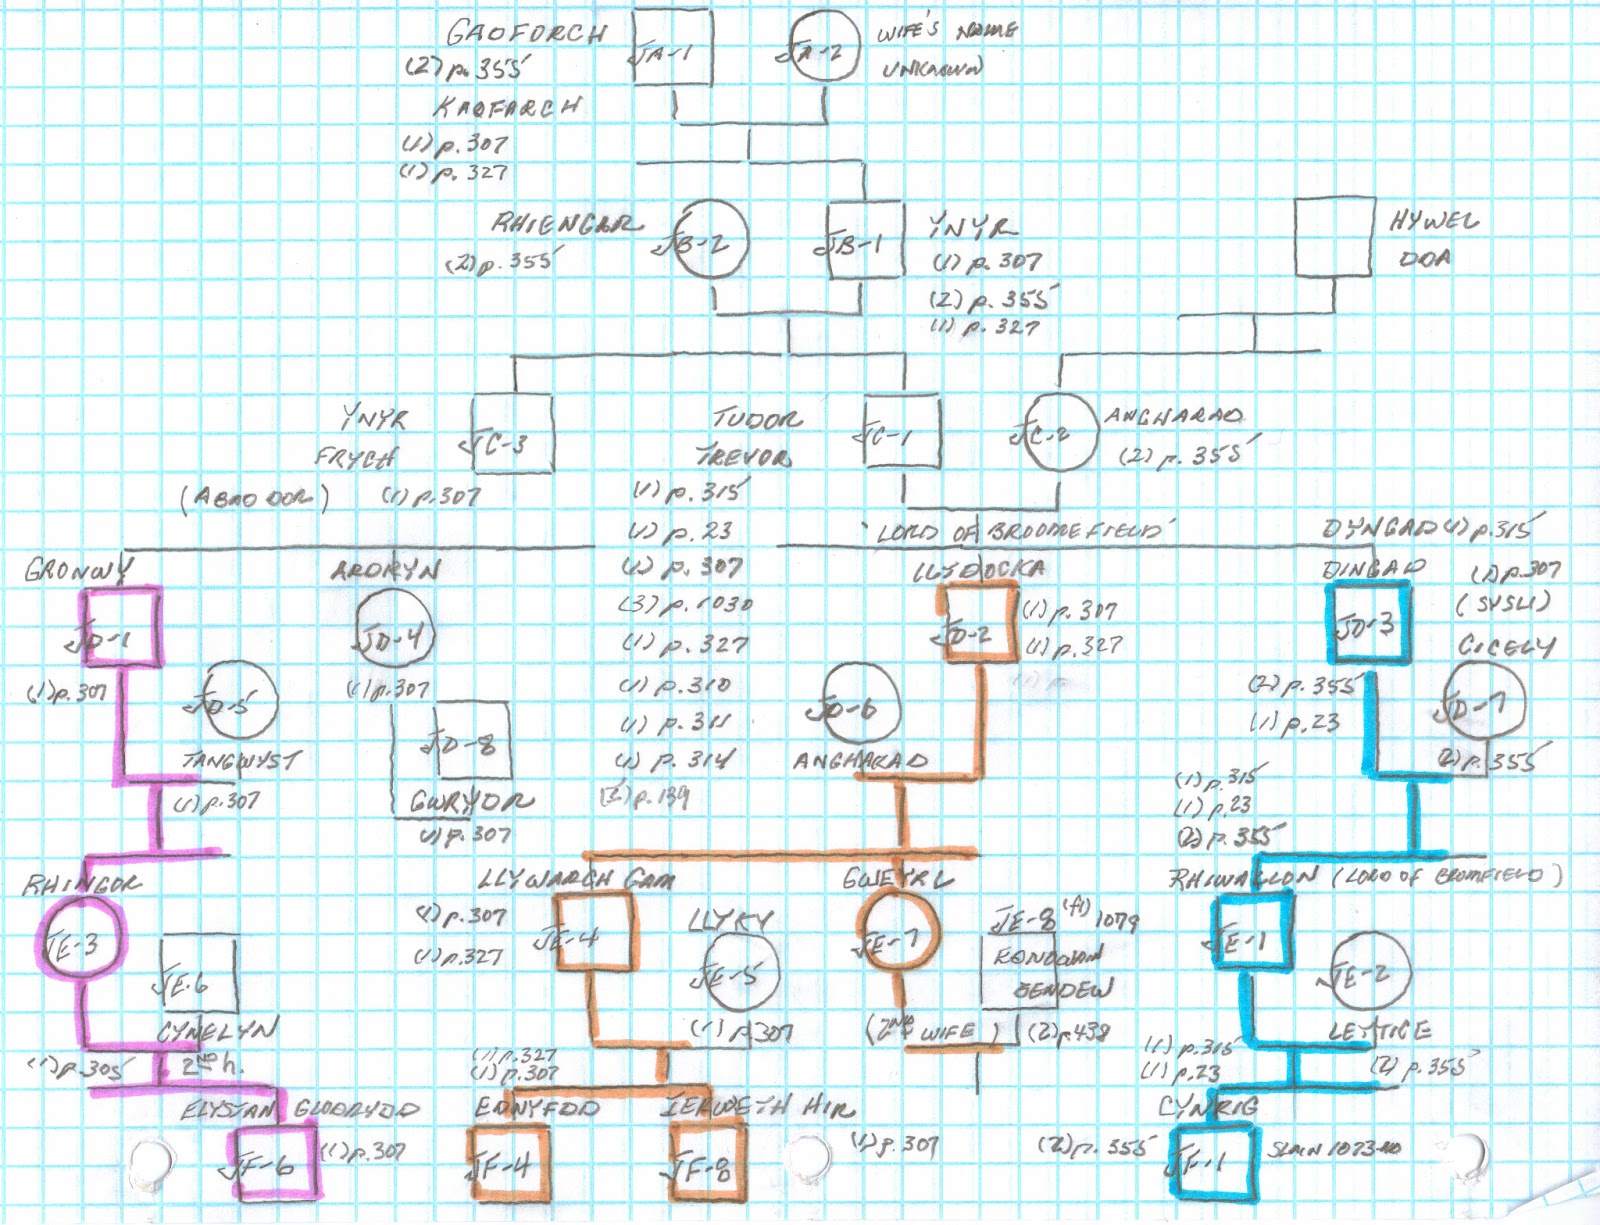 GAOFORCH
(2) p. 355
KAOFARCH
(1) p. 307
(1) p. 327
JA-1
JA-2
WIFE'S NAME
UNKNOWN
RHIENGAR
(2) p. 355
JB-2
JB-1
YNYR
(1) p. 307
(2) p. 355
(1) p. 327
HYWEL
DDA
YNYR
FRYCH
(ABAD DOR)
(1) p. 307
JC-3
TUDOR
TREVOR
JC-1
JC-2
ANGHARAD
(2) p. 355
(1) p. 315
(1) p. 23
(1) p. 307
(3) p. 1030
(1) p. 327
(1) p. 310
(1) p. 311
(1) p. 314
(3) p. 139
'LORD OF BROOMEFIELD'
GRONWY
JD-1
(1) p. 307
JD-5
TANGWYST
(1) p. 307
ARDRYN
JD-4
(1) p. 307
JD-8
GWRYDR
(1) p. 307
LLYDOCKA
JD-2
(1) p. 307
(1) p. 327
JD-6
ANGHARAD
DYNGAD (1) p. 315
DINGAD
(1) p. 307
(SYSLI)
CICELY
JD-3
(2) p. 355
(1) p. 23
JD-7
(2) p. 355
(1) p. 315
(1) p. 23
(2) p. 355
RHINGOR
JE-3
JE-6
CYNELYN
(1) p. 305
2ND h.
LLYWARCH GAM
(1) p. 307
(1) p. 327
JE-4
LLYKY
JE-5
(1) p. 307
GWEYRL
JE-7
(2ND WIFE)
JE-8 (fl) 1079
BENDEW
(2) p. 438
RHIWALLON (LORD OF BROMFIELD)
JE-1
JE-2
LEYTICE
(2) p. 355
(1) p. 315
(1) p. 23
ELYSTAN GLODRYDD
JF-6
(1) p. 307
(1) p. 327
(1) p. 307
EDNYFDD
JF-4
IERWETH HIR
JF-8
(1) p. 307
CYNRIG
(2) p. 355
JF-1
SLAIN 1073